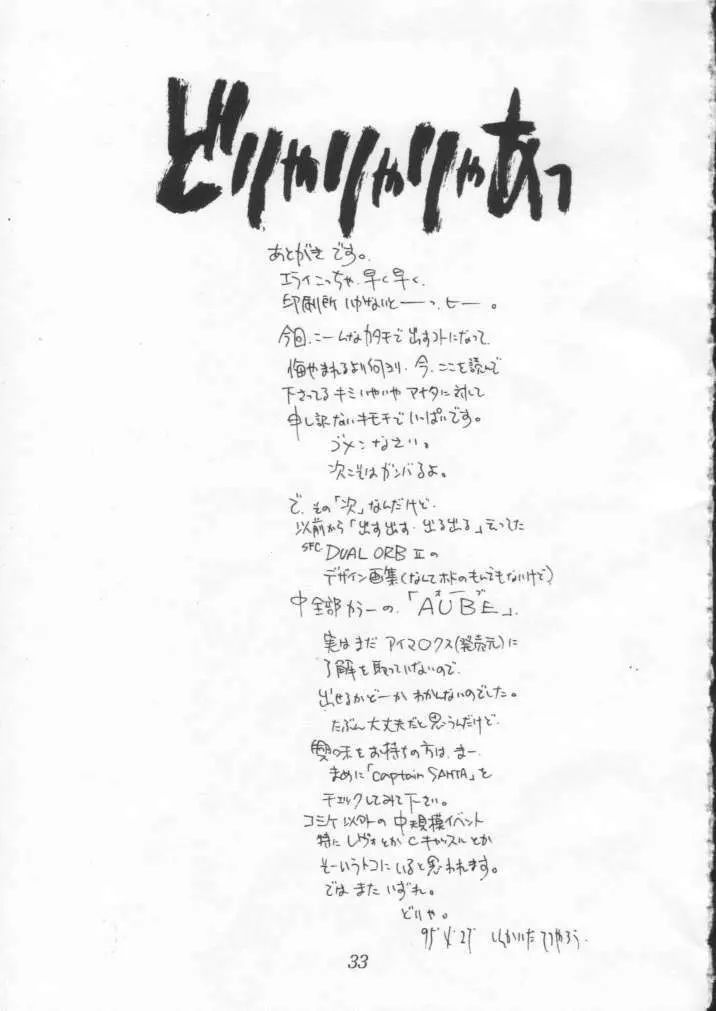 どりゃりゃりゃあっ
あとがきです。
エライこっちゃ、早く早く、
印刷所いかないとーっ、ヒー。
今回、こーんなカタチで出すコトになって、
悔やまれるより何より、今、ここを読んで
下さってるキミいやいやアナタに対して
申し訳ないキモチでいっぱいです。
ゴメンなさい。
次こそはガンバるよ。
で、その「次」なんだけど、
以前から「出す出す・出る出る」云ってた
SFC DUAL ORB Ⅱの
デザイン画集(なんてホドのもんでもないけど)
中全部カラーの、「AUBE」、
オーブ
実はまだ アイマ○クス(発売元)に
了解を取っていないので、
出せるかどーか わかんないのでした。
たぶん大丈夫だと思うんだけど、
興味をお持ちの方は、まー、
まめに「Captain SANTA」を
チェックしてみて下さい。
コミケ以外の中規模イベント
特にレヴォとかCキャッスルとか
そーいうトコにいると思われます。
では またいずれ。
どりゃ。
95' 4' 27'
33